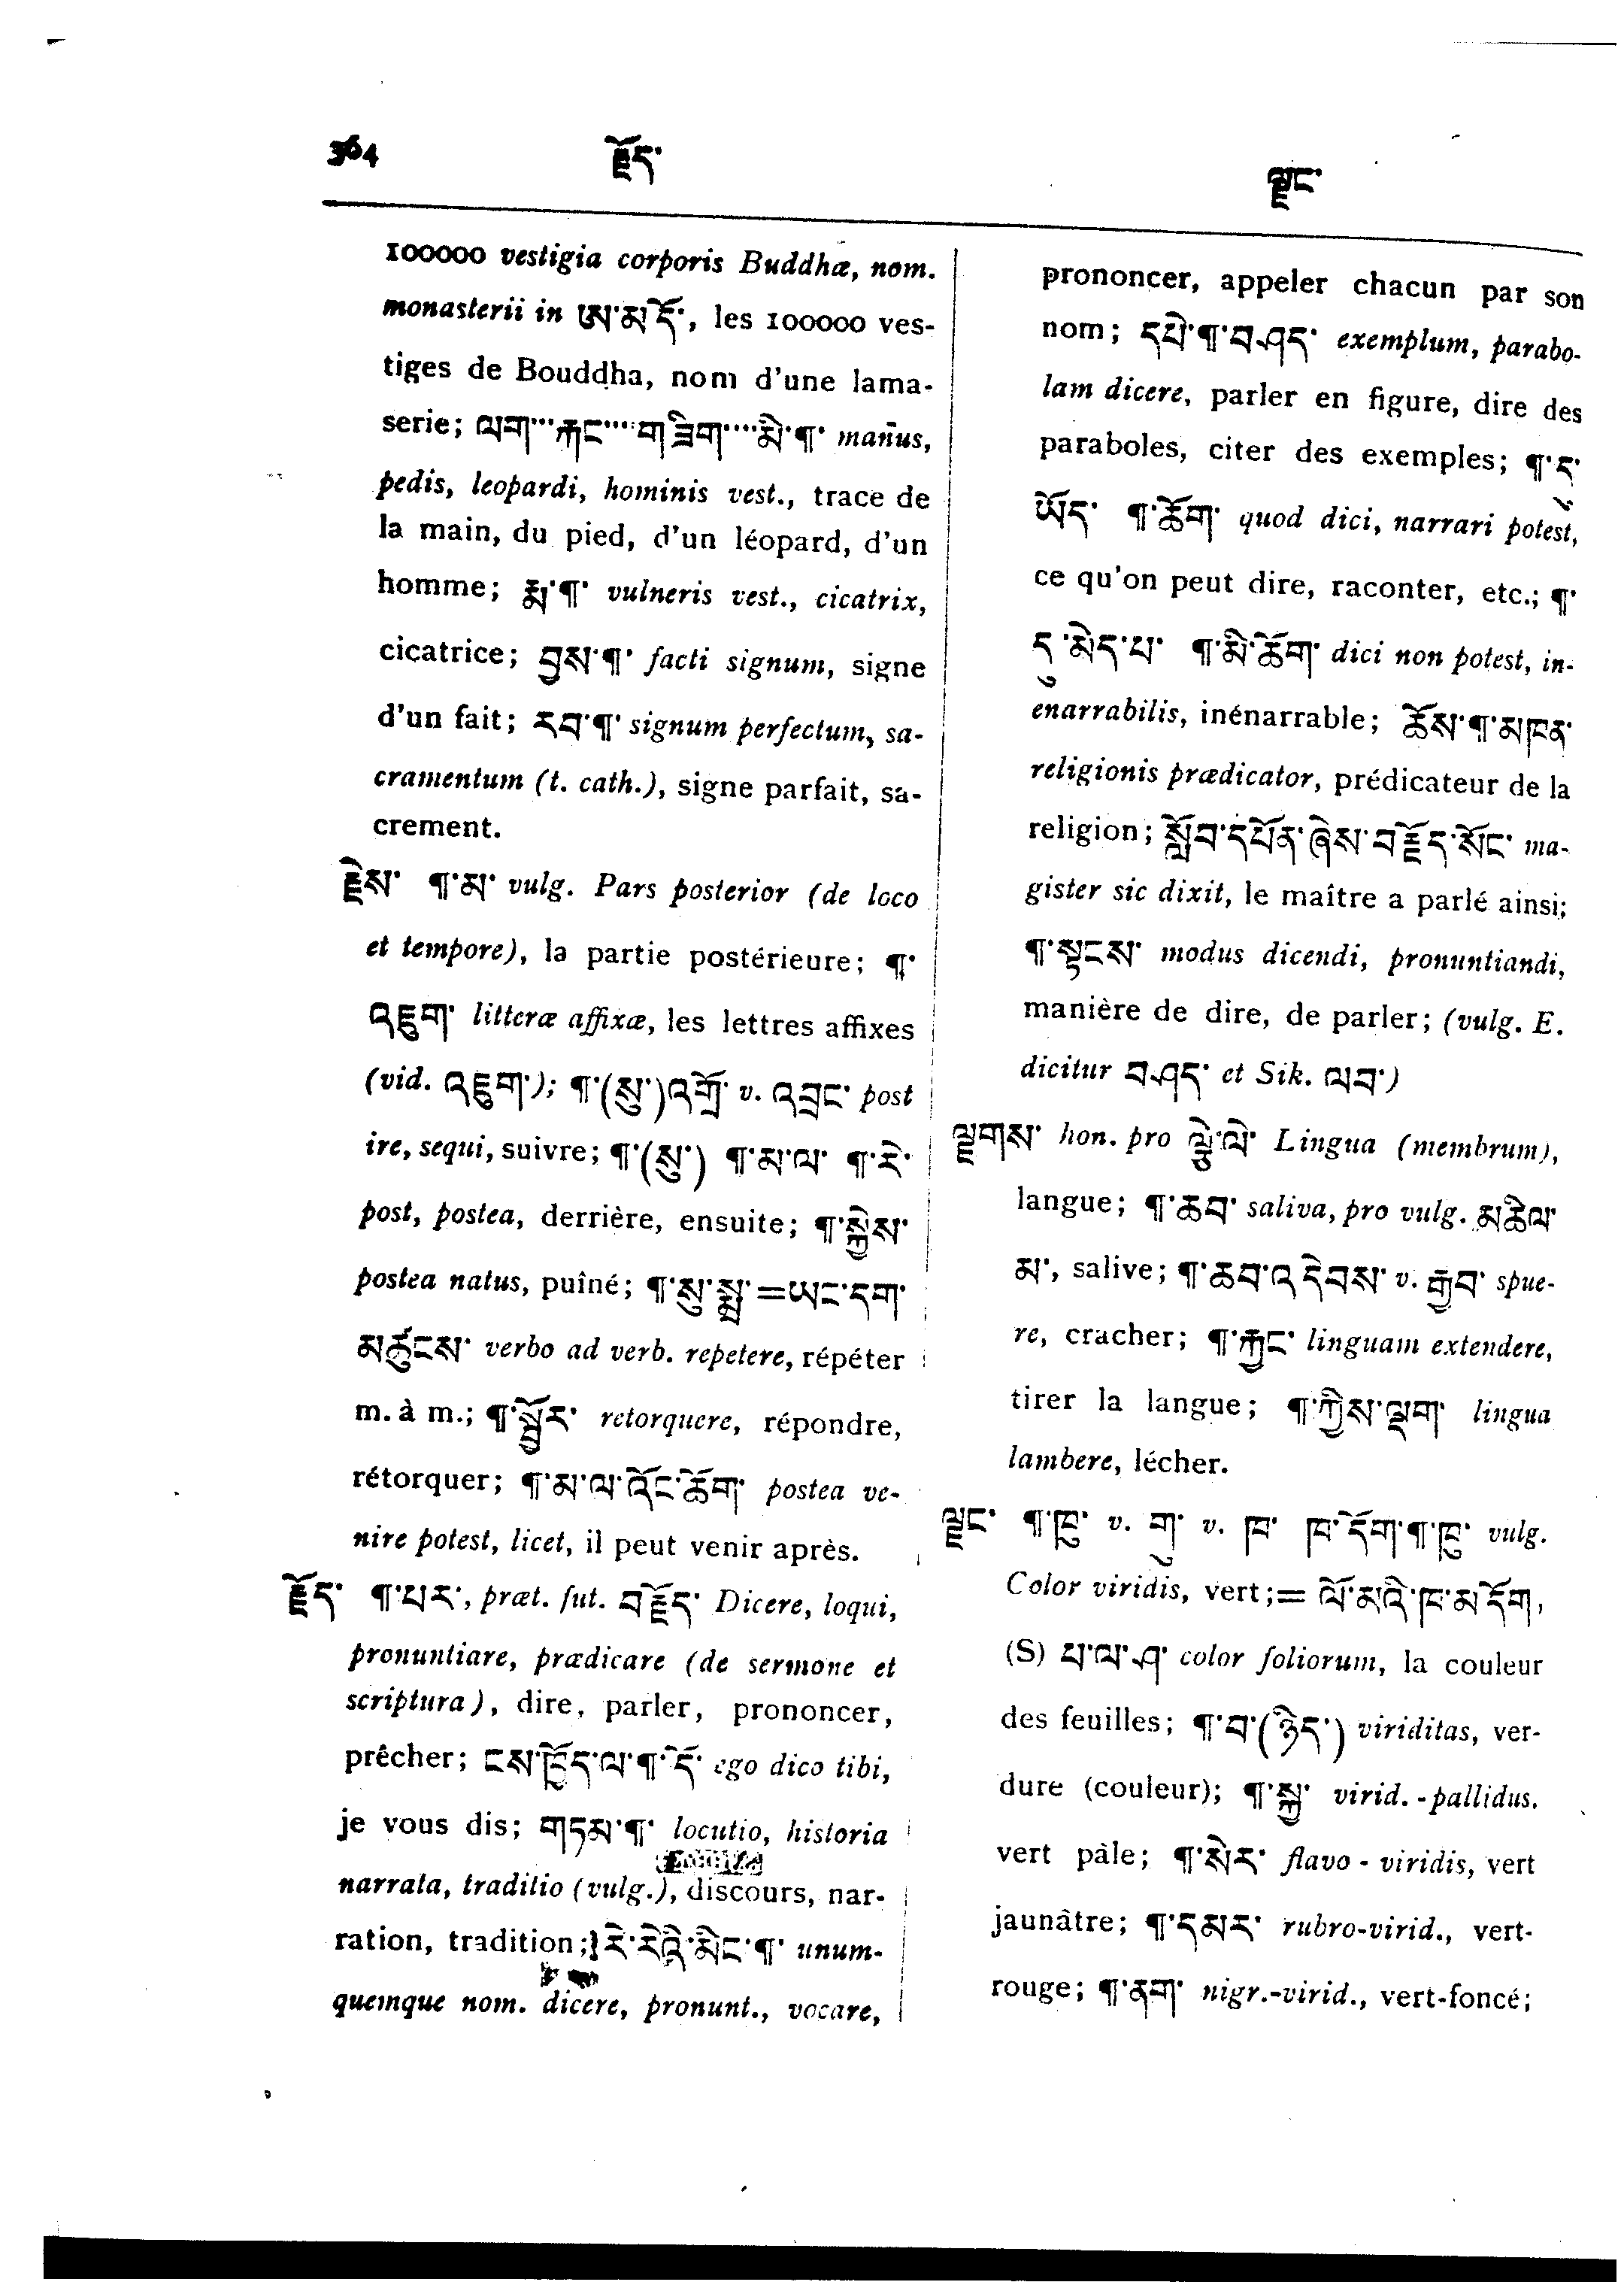 364
རྗོད་
ལྗང་
100000 vestigia corporis Buddhæ, nom.
monasterii in ཨ་མ་དོ་, les 100000 ves-
tiges de Bouddha, nom d'une lama-
serie; ལག་༌༌རྐང་༌༌༌གཟིག་༌༌༌མི་¶་ manus,
pedis, leopardi, hominis vest., trace de
la main, du pied, d'un léopard, d'un
homme; རྨ་¶་ vulneris vest., cicatrix,
cicatrice; བྱས་¶་ facti signum, signe
d'un fait; རབ་¶་ signum perfectum, sa-
cramentum (t. cath.), signe parfait, sa-
crement.
རྗེས་ ¶་མ་ vulg. Pars posterior (de loco
et tempore), la partie postérieure; ¶་
འཇུག་ litteræ affixæ, les lettres affixes
(vid. འཇུག་); ¶་(སུ་)འགྲོ་ v. འབྲང་ post
ire, sequi, suivre; ¶་(སུ་) ¶་མ་ལ་ ¶་རེ་
post, postea, derrière, ensuite; ¶་སྐྱེས་
postea natus, puîné; ¶་སུ་སྨྲ་=ཡང་དག་
མཚུངས་ verbo ad verb. repetere, répéter
m. à m.; ¶་སྦྱོར་ retorquere, répondre,
rétorquer; ¶་མ་ལ་འོང་ཆོག་ postea ve-
nire potest, licet, il peut venir après.
རྗོད་ ¶་པར་, præt. fut. བརྗོད་ Dicere, loqui,
pronuntiare, prædicare (de sermone et
scriptura), dire, parler, prononcer,
prêcher; ངས་ཁྱོད་ལ་¶་དོ་ ego dico tibi,
je vous dis; གཏམ་¶་ locutio, historia
narrata, traditio (vulg.), discours, nar-
ration, tradition; རེ་རེའི་མིང་¶་ unum-
quemque nom. dicere, pronunt., vocare,
prononcer, appeler chacun par son
nom; དཔེ་¶་བཤད་ exemplum, parabo-
lam dicere, parler en figure, dire des
paraboles, citer des exemples; ¶་དུ་
ཡོད་ ¶་ཆོག་ quod dici, narrari potest,
ce qu'on peut dire, raconter, etc.; ¶་
དུ་མེད་པ་ ¶་མི་ཆོག་ dici non potest, in-
enarrabilis, inénarrable; ཆོས་¶་མཁན་
religionis prædicator, prédicateur de la
religion; སློབ་དཔོན་ཞེས་བརྗོད་སོང་ ma-
gister sic dixit, le maître a parlé ainsi;
¶་སྟངས་ modus dicendi, pronuntiandi,
manière de dire, de parler; (vulg. E.
dicitur བཤད་ et Sik. ལབ་)
ལྗགས་ hon. pro ལྕེ་ Lingua (membrum),
langue; ¶་ཆབ་ saliva, pro vulg. མཆིལ་
མ་, salive; ¶་ཆབ་འདེབས་ v. རྒྱབ་ spue-
re, cracher; ¶་རྐྱང་ linguam extendere,
tirer la langue; ¶་ཀྱིས་ལྡག་ lingua
lambere, lécher.
ལྗང་ ¶་ཁུ་ v. གུ་ v. ཁ་ ཁ་དོག་¶་ཁུ་ vulg.
Color viridis, vert;= ལོ་མའི་ཁ་མདོག,
(S) པ་ལ་ཤ་ color foliorum, la couleur
des feuilles; ¶་བ་(ཉིད་) viriditas, ver-
dure (couleur); ¶་སྐྱ་ virid.-pallidus.
vert pâle; ¶་སེར་ flavo-viridis, vert
jaunâtre; ¶་དམར་ rubro-virid., vert-
rouge; ¶་ནག་ nigr.-virid., vert-foncé;